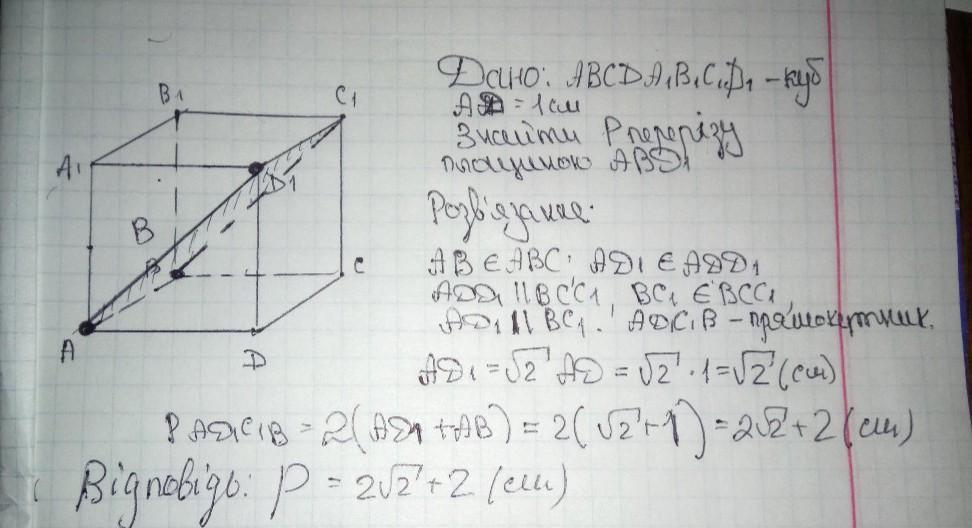 Дано: ABCDA₁B₁C₁D₁ - куб
AD = 1 см
Знайти P перерізу
площиною ABD₁
Розв'язання:
AB ∈ ABC; AD₁ ∈ ADD₁
ADD₁ || BCC₁, BC₁ ∈ BCC₁,
AD₁ || BC₁. AD₁C₁B - прямокутник.
AD₁ = √2 AD = √2 · 1 = √2 (см)
P AD₁C₁B = 2(AD₁ + AB) = 2(√2 + 1) = 2√2 + 2 (см)
Відповідь: P = 2√2 + 2 (см)
B₁
C₁
A₁
D₁
B
B
C
A
D